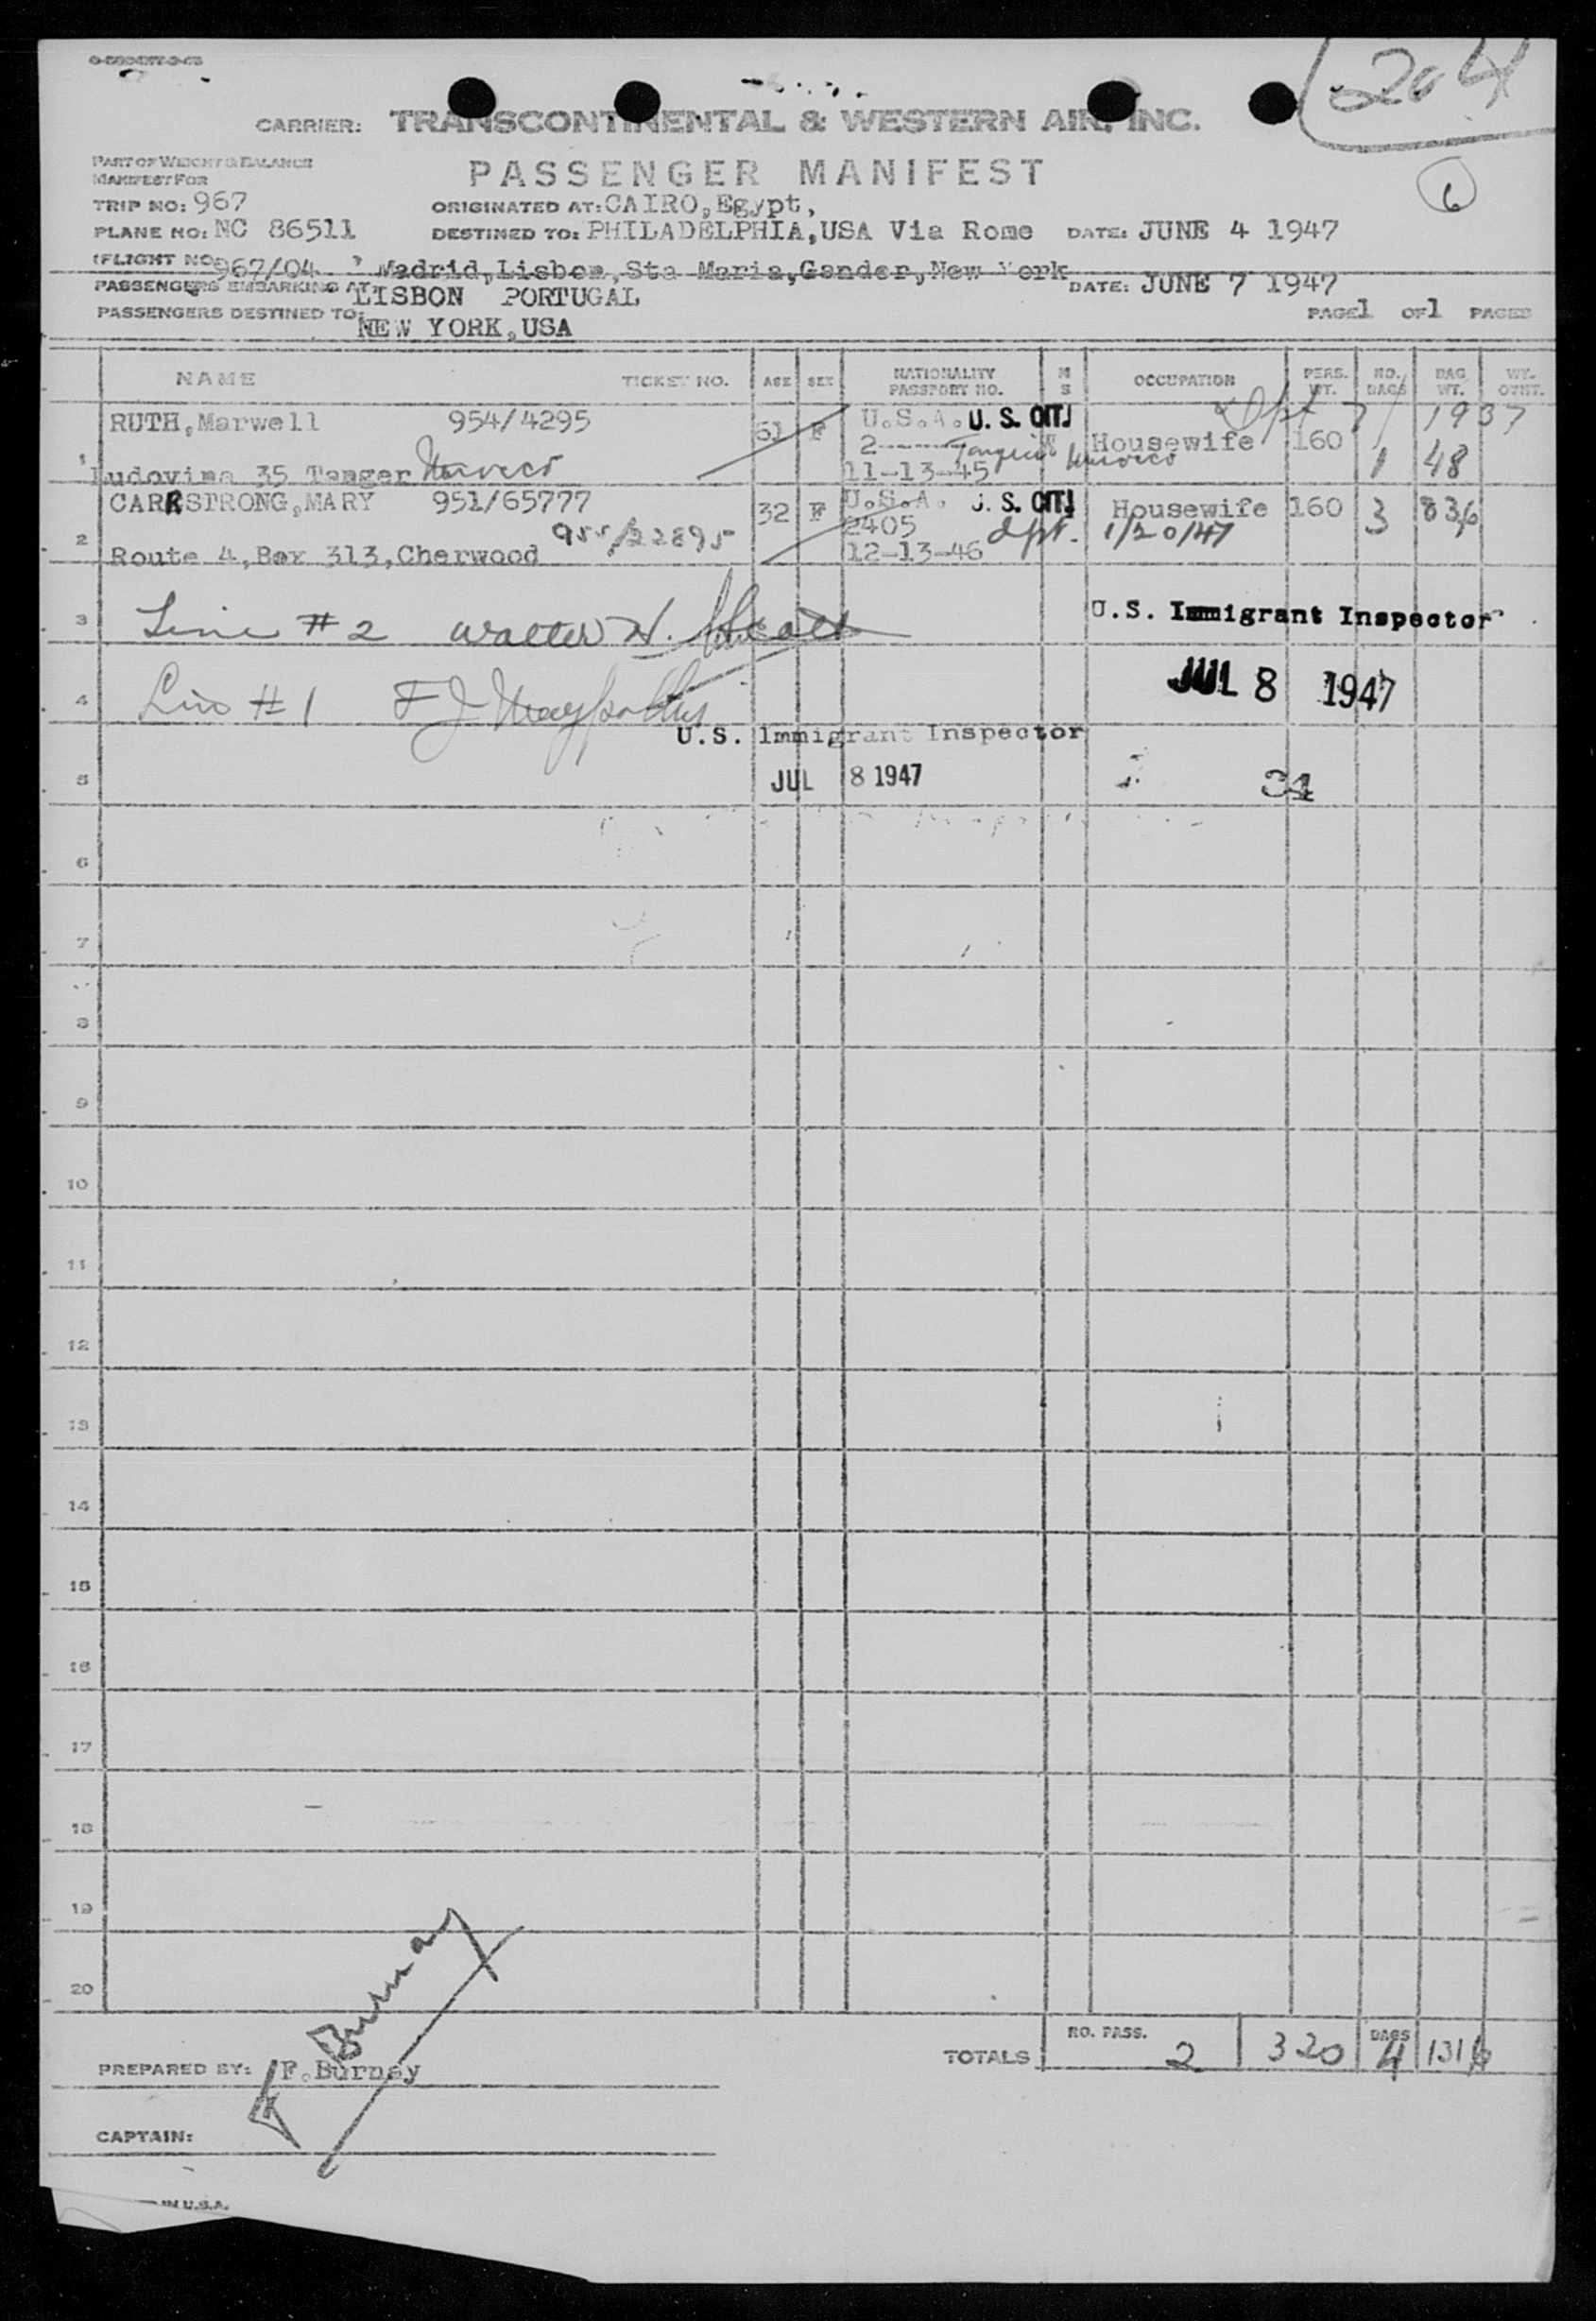 204
CARRIER: TRANSCONTINENTAL & WESTERN AIR, INC.
PART OF WEIGHT & BALANCE
MANIFEST FOR
PASSENGER MANIFEST
6
TRIP NO: 967
ORIGINATED AT: CAIRO, Egypt,
PLANE NO: NC 86511
DESTINED TO: PHILADELPHIA, USA Via Rome DATE: JUNE 4 1947
FLIGHT NO 967/04 Madrid, Lisbon, Sta Maria, Gander, New York
PASSENGERS EMBARKING AT: LISBON PORTUGAL DATE: JUNE 7 1947
PASSENGERS DESTINED TO: NEW YORK, USA PAGE 1 OF 1 PAGES
NAME TICKET NO. AGE SEX NATIONALITY PASSPORT NO. M S OCCUPATION PERS. WT. NO. BAGS BAG WT. WT. OTHT.
1 RUTH, Marwell 954/4295 61 F U.S.A. U. S. CIT. Housewife 160 1 48
2------- 1937
Ludovima 35 Tanger Morocco 11-13-45 Tangier Morocco
2 CARRSTRONG, MARY 951/65777 32 F U.S.A. U. S. CIT. Housewife 160 3 836
955/22895 2405 dpt. 1/20/47
Route 4, Box 313, Cherwood 12-13-46
3 Line #2 Walter H.
U.S. Immigrant Inspector
4 Line #1 F J
JUL 8 1947
U.S. Immigrant Inspector
5 JUL 8 1947
34
6
7
8
9
10
11
12
13
14
15
16
17
18
19
20
TOTALS NO. PASS. 2 320 BAGS 4 1316
F Burnay
PREPARED BY: F. Burnay
CAPTAIN:
IN U.S.A.